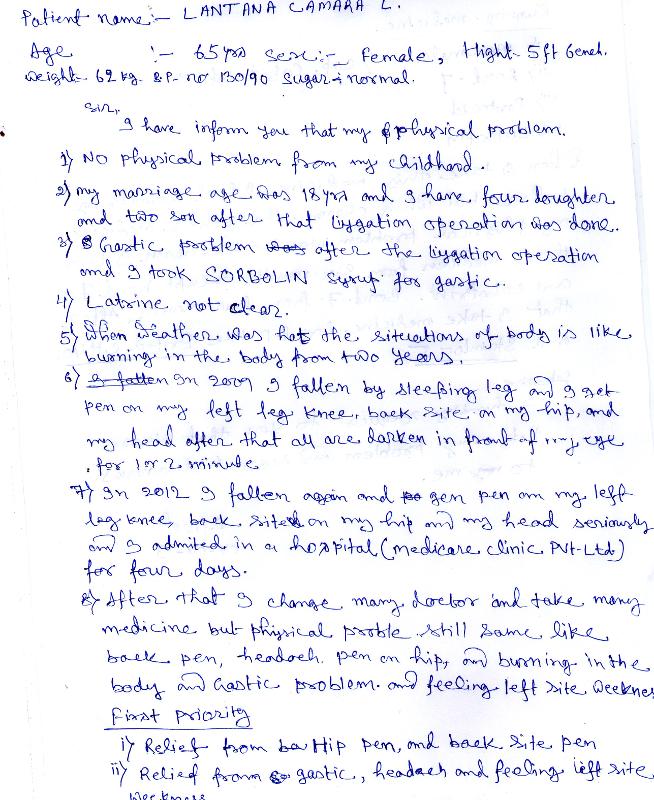 Patient name:- LANTANA CAMARA L.
Age :- 65 yrs sexc:- Female, Hight- 5ft 6ench.
weight- 62 kg. B.P- no 130/90 sugar-: normal.
Sir,
I have inform you that my physical problem.
1) NO physical problem from my childhood.
2) my marriage age was 18 yrs and I have four doughter
and two son after that liygation operation was done.
3) Gastic problem was after the liygation operation
and I took SORBOLIN syrup for gastic.
4) Latrine not clear.
5) When weather was hot the situations of body is like
burning in the body from two years.
6) I fallen In 2009 I fallen by sleeping leg and I get
pen on my left leg knee, back site on my hip, and
my head after that all are darken in front of my eye
for 1 or 2 minute
7) In 2012 I fallen again and gen pen on my left
leg knee, back site on my hip and my head seriously
and I admited in a hospital (medicare clinic Pvt-Ltd)
for four days.
8) After that I change many doctor and take many
medicine but physical proble still same like
back pen, headach. pen on hip, and burning in the
body and Gastic problem. and feeling left site weeknes
First Priority
i) Relief from ba Hip pen, and back site pen
ii) Relief from gastic, headach and feeling left site
weekness